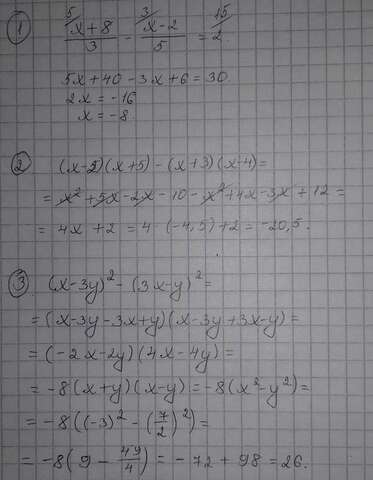 1 5/ (x+8)/3 - 3/ (x-2)/5 = 15/ 2
5x+40-3x+6=30
2x=-16
x=-8.
2 (x-2)(x+5)-(x+3)(x-4)=
= x²+5x-2x-10-x²+4x-3x+12=
= 4x+2=4·(-4,5)+2=-20,5.
3 (x-3y)²-(3x-y)²=
=(x-3y-3x+y)(x-3y+3x-y)=
=(-2x-2y)(4x-4y)=
=-8(x+y)(x-y)=-8(x²-y²)=
=-8((-3)²-(7/2)²)=
=-8(9-49/4)=-72+98=26.